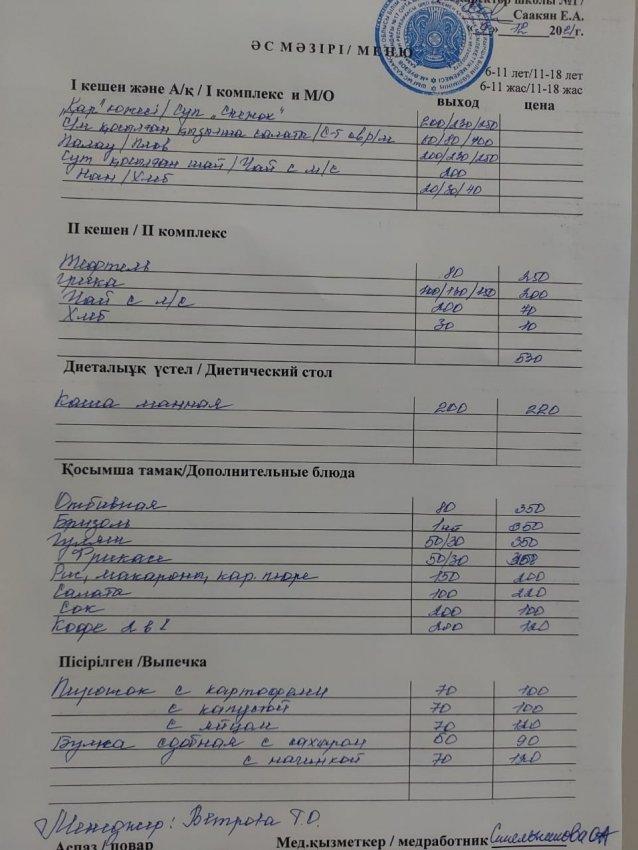 директор школы №17
Саакян Е.А.
12 2021г.
ӘС МӘЗІРІ / МЕНЮ
6-11 лет/11-18 лет
6-11 жас/11-18 жас
I кешен және А/қ / I комплекс и М/О выход цена
„Қар" көжесі / Суп „Снежок" 200/230/250
С/м қосылған қызылша салаты / С-т св р/м 60/80/100
Палау / Плов 200/230/250
Сүт қосылған шай / Чай с м/с 200
Нан / Хлеб 20/30/40
II кешен / II комплекс
Тефтель 80 250
Гречка 100/130/150 200
Чай с м/с 200 70
Хлеб 30 10
530
Диеталық үстел / Диетический стол
Каша манная 200 220
Қосымша тамақ/Дополнительные блюда
Отбивная 80 350
Бризоль 1шт 350
Гуляш 50/30 350
Фрикасе 50/30 350
Рис, макароны, кар. пюре 150 200
Салаты 100 220
Сок 200 100
Кофе 2 в 1 200 120
Пісірілген /Выпечка
Пирожок с картофелем 70 100
с капустой 70 100
с яйцом 70 120
Булка сдобная с сахаром 60 90
с начинкой 70 120
Менеджер: Ветрова Т.О.
Аспаз / повар Мед.қызметкер / медработник